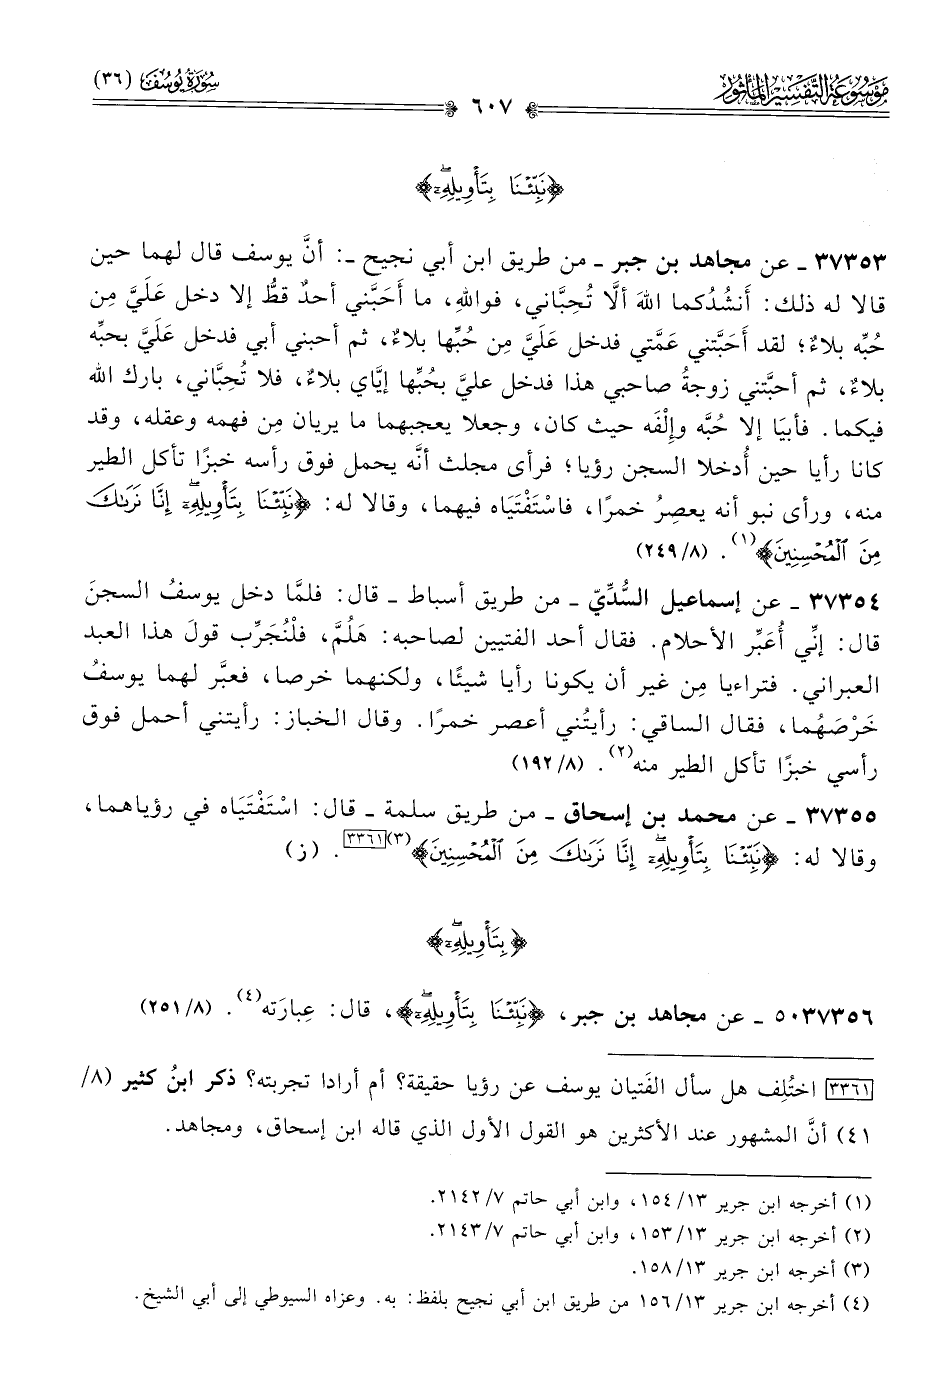 موسوعة التفسير المأثور
٦٠٧
سورة يوسف (٣٦)
﴿نَبِّئْنَا بِتَأْوِيلِهِۦٓ﴾
٣٧٣٥٣ ـ عن مجاهد بن جبر ـ من طريق ابن أبي نجيح ـ: أنَّ يوسف قال لهما حين
قالا له ذلك: أَنشُدُكما اللهَ ألَّا تُحِبَّاني، فواللهِ، ما أَحَبَّني أحدٌ قطُّ إلا دخل عَلَيَّ مِن
حُبِّه بلاءٌ؛ لقد أَحَبَّتني عَمَّتي فدخل عَلَيَّ مِن حُبِّها بلاءٌ، ثم أحبني أبي فدخل عَلَيَّ بحبِّه
بلاءٌ، ثم أحبَّتني زوجةُ صاحبي هذا فدخل عليَّ بحُبِّها إيَّاي بلاءٌ، فلا تُحِبَّاني، بارك الله
فيكما. فأبيَا إلا حُبَّه وإلْفَه حيث كان، وجعلا يعجبهما ما يريان مِن فهمه وعقله، وقد
كانا رأيا حين أُدخلا السجن رؤيا؛ فرأى مجلث أنَّه يحمل فوق رأسه خبزًا تأكل الطير
منه، ورأى نبو أنه يعصِرُ خمرًا، فاسْتَفْتَياه فيهما، وقالا له: ﴿نَبِّئْنَا بِتَأْوِيلِهِۦٓ إِنَّا نَرَىٰكَ
مِنَ ٱلْمُحْسِنِينَ﴾(١). (٢٤٩/٨)
٣٧٣٥٤ ـ عن إسماعيل السُّدِّيّ ـ من طريق أسباط ـ قال: فلمَّا دخل يوسفُ السجنَ
قال: إنِّي أُعَبِّر الأحلام. فقال أحد الفتيين لصاحبه: هَلُمَّ، فلْنُجَرِّب قولَ هذا العبد
العبراني. فتراءيا مِن غير أن يكونا رأيا شيئًا، ولكنهما خرصا، فعبَّر لهما يوسفُ
خَرْصَهُما، فقال الساقي: رأيتُني أعصر خمرًا. وقال الخباز: رأيتني أحمل فوق
رأسي خبزًا تأكل الطير منه(٢). (١٩٢/٨)
٣٧٣٥٥ ـ عن محمد بن إسحاق ـ من طريق سلمة ـ قال: اسْتَفْتَيَاه في رؤياهما،
وقالا له: ﴿نَبِّئْنَا بِتَأْوِيلِهِۦٓ إِنَّا نَرَىٰكَ مِنَ ٱلْمُحْسِنِينَ﴾(٣)[٣٣٦١]. (ز)
﴿بِتَأْوِيلِهِۦٓ﴾
٥٠٣٧٣٥٦ ـ عن مجاهد بن جبر، ﴿نَبِّئْنَا بِتَأْوِيلِهِۦٓ﴾، قال: عِبارَته(٤). (٢٥١/٨)
[٣٣٦١] اختُلِف هل سأل الفَتيان يوسف عن رؤيا حقيقة؟ أم أرادا تجربته؟ ذكر ابنُ كثير (٨/
٤١) أنَّ المشهور عند الأكثرين هو القول الأول الذي قاله ابن إسحاق، ومجاهد.
(١) أخرجه ابن جرير ١٥٤/١٣، وابن أبي حاتم ٢١٤٢/٧.
(٢) أخرجه ابن جرير ١٥٣/١٣، وابن أبي حاتم ٢١٤٣/٧.
(٣) أخرجه ابن جرير ١٥٨/١٣.
(٤) أخرجه ابن جرير ١٥٦/١٣ من طريق ابن أبي نجيح بلفظ: به. وعزاه السيوطي إلى أبي الشيخ.